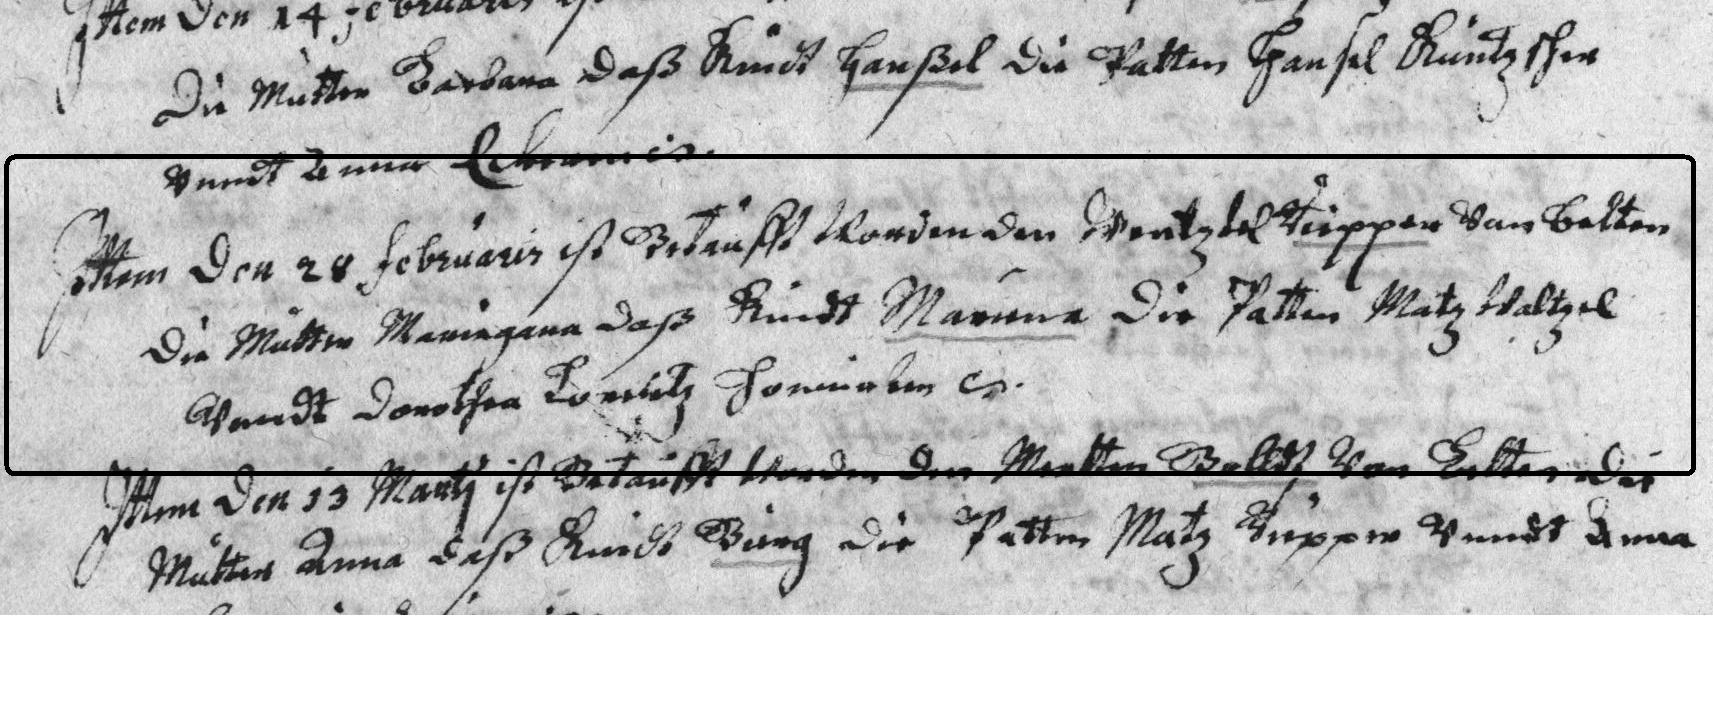 Ittem Den 14 februaris ist
Die Mutter Barbara daß Kindt Hanßel Die Patten Hansel Küntzscher
vnndt Anna
Ittem Den 28 februaris ist Getaufft Worden den Wentzel Tüpper Von Gelten
Die Mutter Mariegana daß Kindt Mariena Die Patten Matz Waltzel
Vnndt Dorothea Lorentz
Ittem Den 13 Martij ist Getaufft Worden den Merten Von Gelten Die
Mutter Anna daß Kindt Girg die Patten Matz Tüpper Vnndt Anna